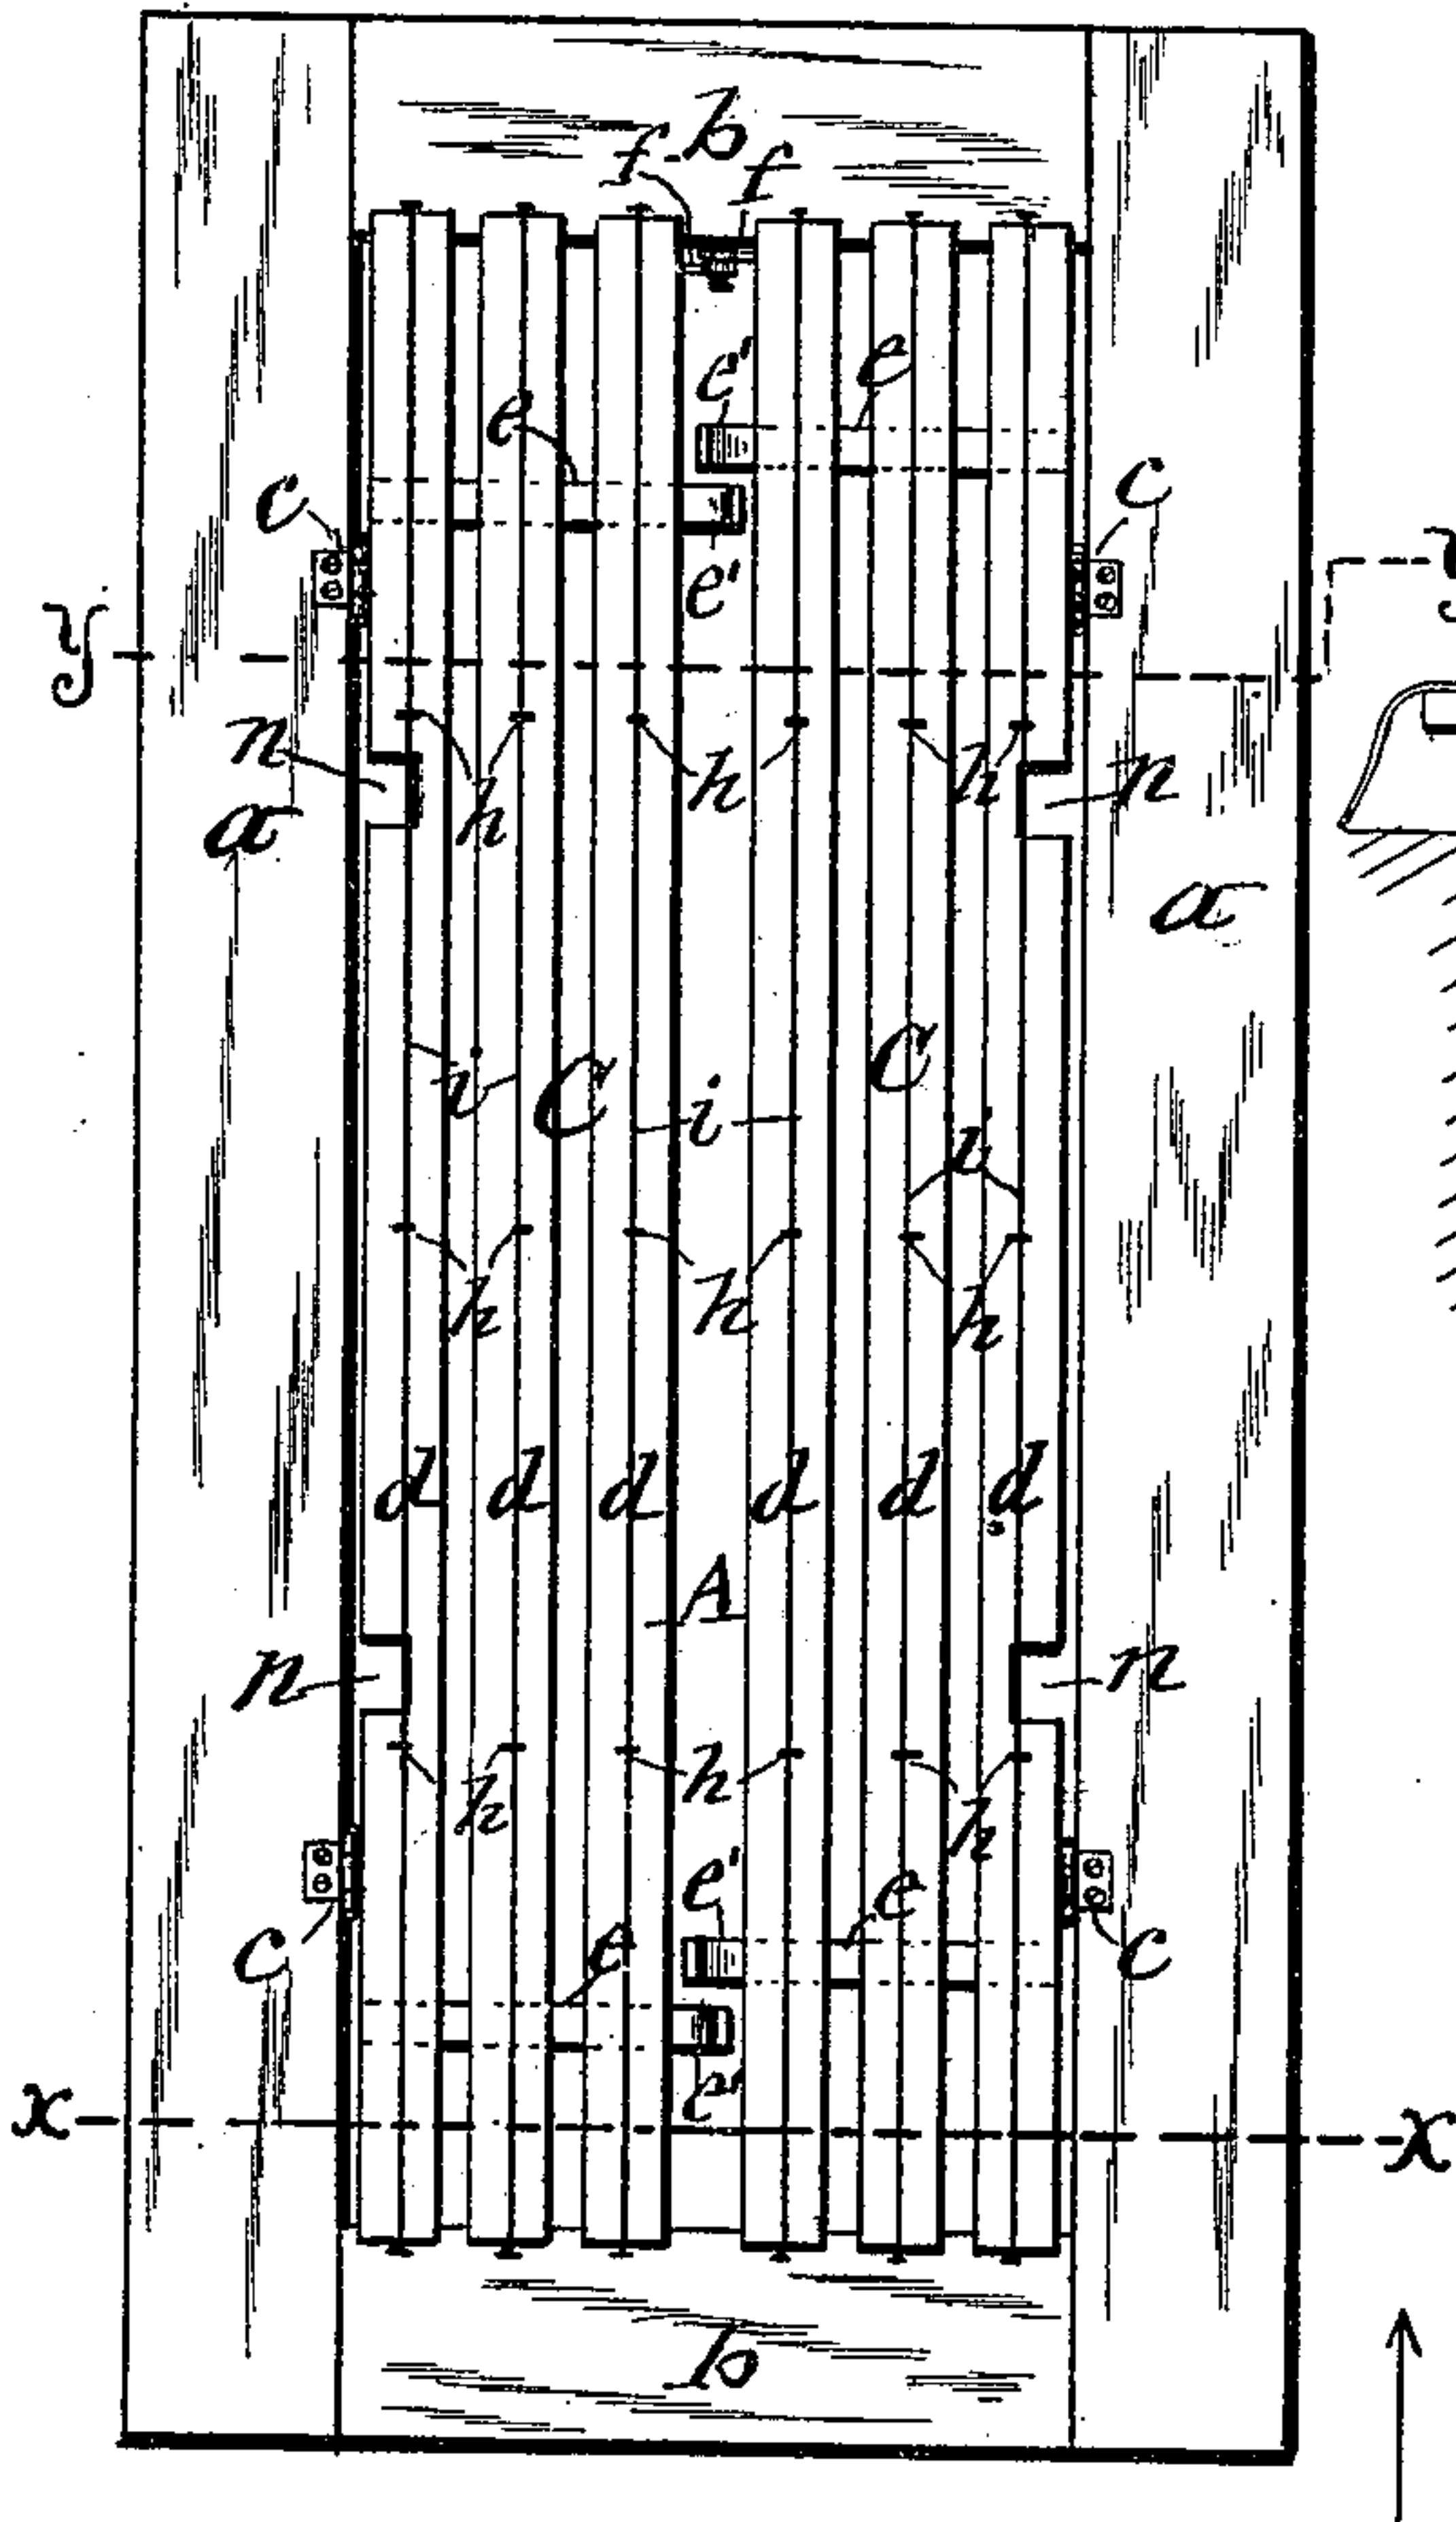 b
f f
e' e
e
c c
e'
y y
n h h h n
a a
i C i C i
h h h
d d d d d d
A
n n
h h h
e' e
c e c
e'
x x
b